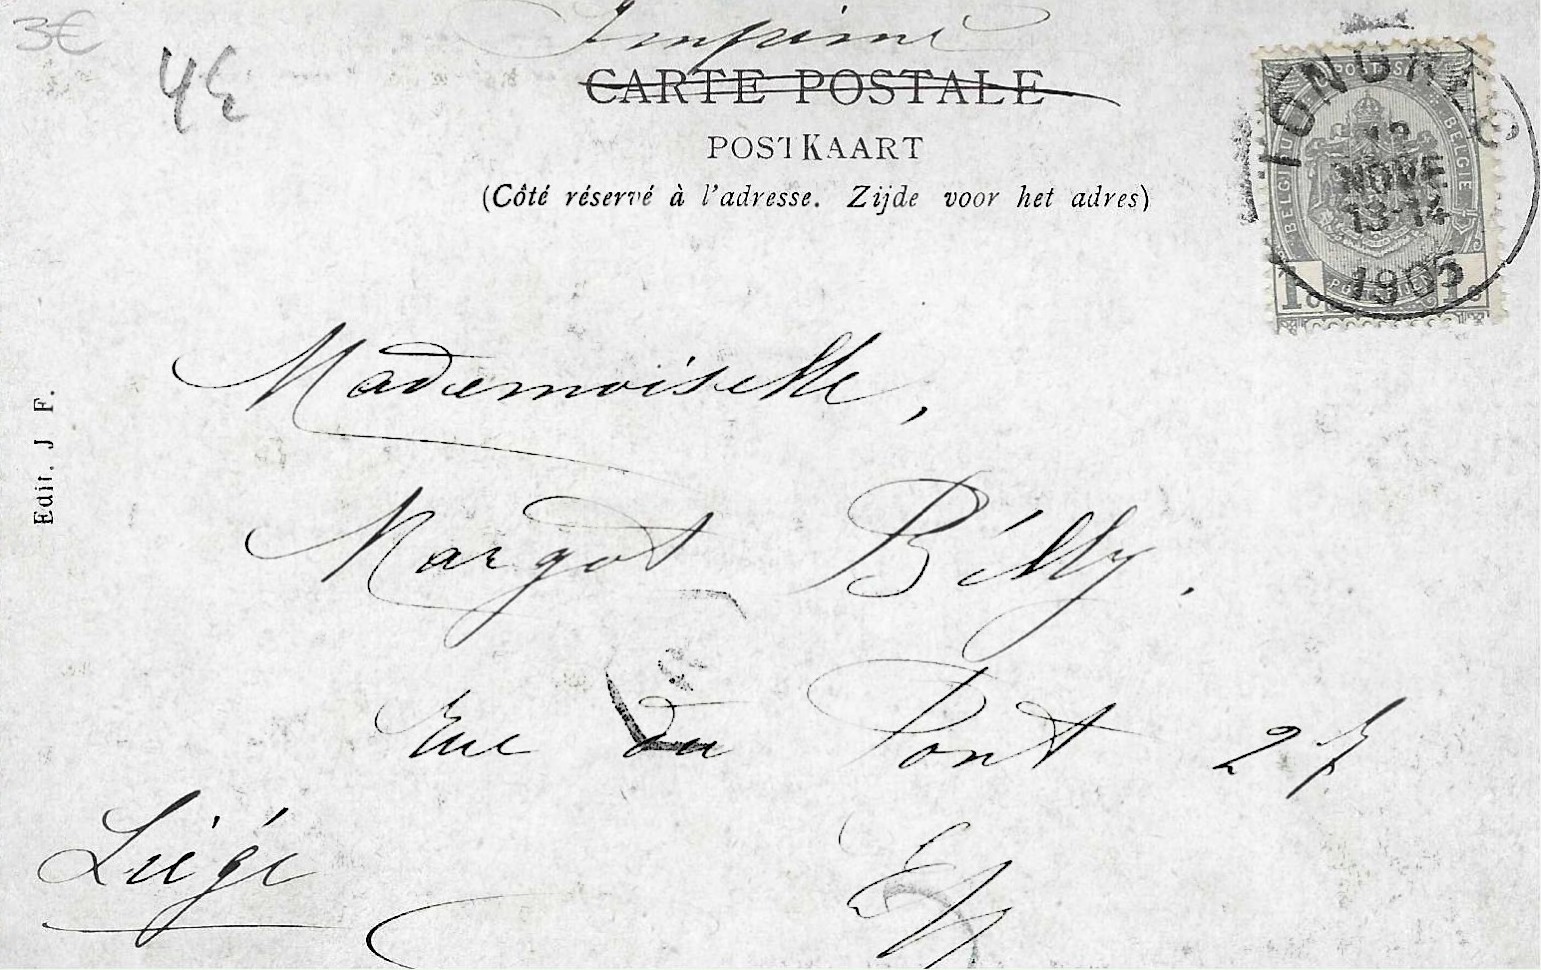 3€
4€
Imprimé
CARTE POSTALE
POSTKAART
(Côté réservé à l'adresse. Zijde voor het adres)
TONGRES
12
NOVE
13-14
1905
BELGIQUE
BELGIE
1c
Edit. J F.
Mademoiselle,
Margot Bélly.
Rue du Pont 27
Liége
E/V